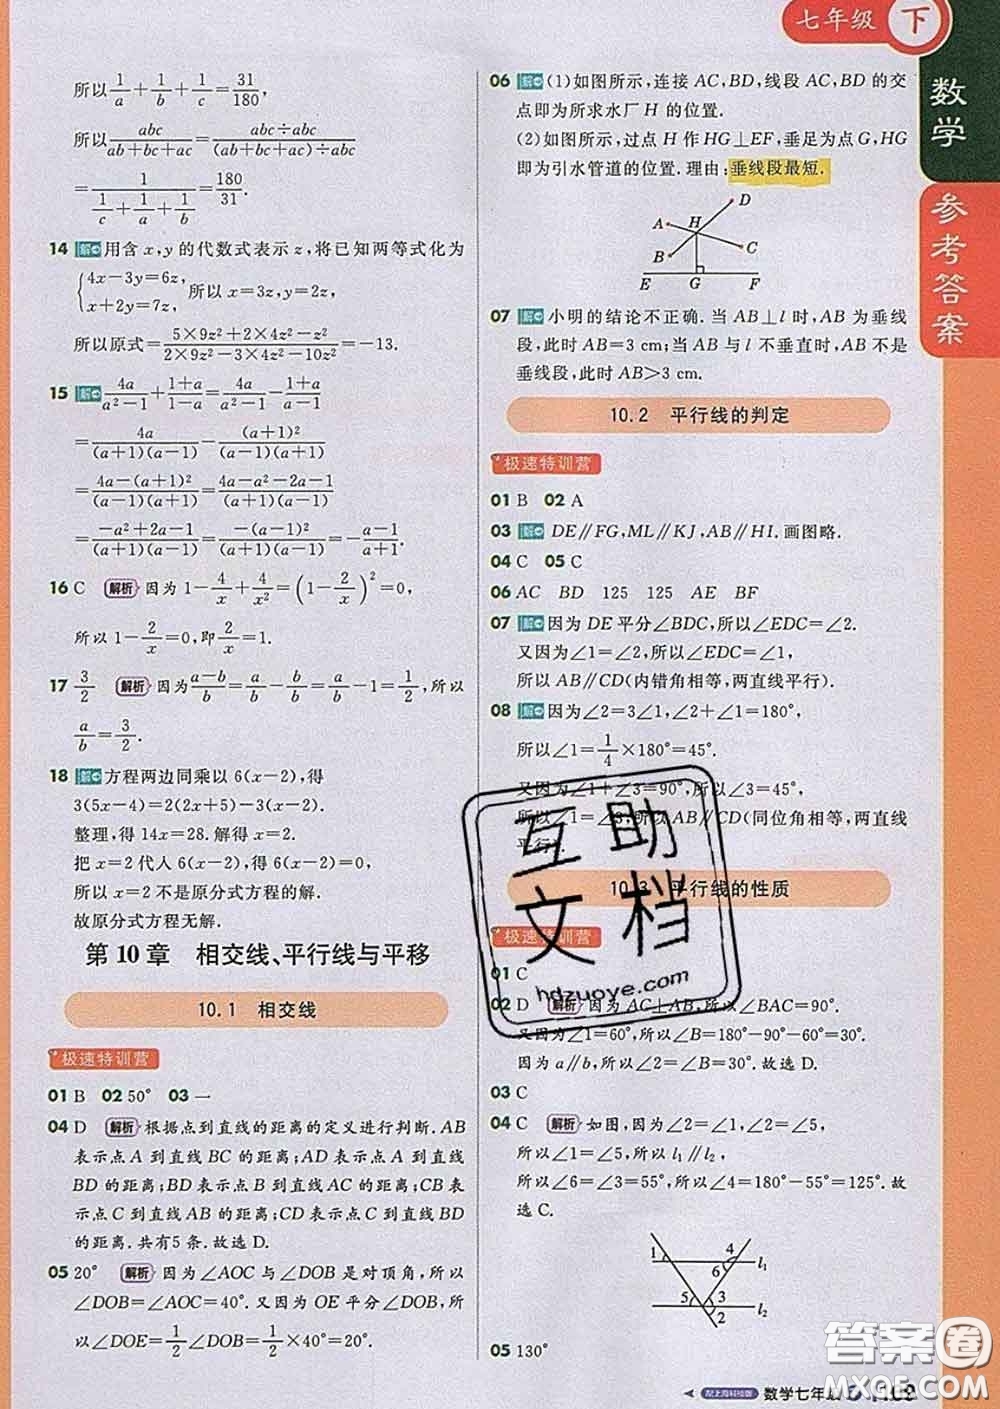 七年级 下
数学
参考答案
所以 1/a + 1/b + 1/c = 31/180,
所以 abc/(ab+bc+ac) = (abc÷abc)/((ab+bc+ac)÷abc)
= 1/(1/c + 1/a + 1/b) = 180/31.
14 解 用含 x,y 的代数式表示 z,将已知两等式化为
{4x-3y=6z, x+2y=7z, 所以 x=3z,y=2z,
所以原式= (5×9z²+2×4z²-z²)/(2×9z²-3×4z²-10z²) =-13.
15 解 4a/(a²-1) + (1+a)/(1-a) = 4a/(a²-1) - (1+a)/(a-1)
= 4a/((a+1)(a-1)) - (a+1)²/((a+1)(a-1))
= (4a-(a+1)²)/((a-1)(a+1)) = (4a-a²-2a-1)/((a-1)(a+1))
= (-a²+2a-1)/((a+1)(a-1)) = -(a-1)²/((a+1)(a-1)) = -(a-1)/(a+1).
16 C 解析 因为 1-4/x+4/x²=(1-2/x)²=0,
所以 1-2/x=0,即 2/x=1.
17 3/2 解析 因为 (a-b)/b = a/b - b/b = a/b -1= 1/2,所以
a/b = 3/2.
18 解 方程两边同乘以 6(x-2),得
3(5x-4)=2(2x+5)-3(x-2).
整理,得 14x=28. 解得 x=2.
把 x=2 代人 6(x-2),得 6(x-2)=0.
所以 x=2 不是原分式方程的解.
故原分式方程无解.
第 10 章 相交线、平行线与平移
10.1 相交线
极速特训营
01 B 02 50° 03 一
04 D 解析 根据点到直线的距离的定义进行判断. AB
表示点 A 到直线 BC 的距离;AD 表示点 A 到直线
BD 的距离;BD 表示点 B 到直线 AC 的距离;CB 表
示点 C 到直线 AB 的距离;CD 表示点 C 到直线 BD
的距离. 共有5 条. 故选 D.
05 20° 解析 因为∠AOC 与∠DOB 是对顶角,所以
∠DOB=∠AOC=40°. 又因为 OE 平分∠DOB,所
以∠DOE=1/2∠DOB=1/2×40°=20°.
06 解 (1)如图所示,连接 AC,BD,线段 AC,BD 的交
点即为所求水厂 H 的位置.
(2)如图所示,过点 H 作 HG⊥EF,垂足为点G,HG
即为引水管道的位置. 理由:垂线段最短.
D
A H
C
B
E G F
07 解 小明的结论不正确. 当 AB⊥l 时,AB 为垂线
段,此时 AB=3 cm;当 AB 与 l 不垂直时,AB 不是
垂线段,此时 AB>3 cm.
10.2 平行线的判定
极速特训营
01 B 02 A
03 解 DE∥FG,ML∥KJ,AB∥HI. 画图略.
04 C 05 C
06 AC BD 125 125 AE BF
07 解 因为 DE 平分∠BDC,所以∠EDC=∠2.
又因为∠1=∠2,所以∠EDC=∠1,
所以 AB∥CD(内错角相等,两直线平行).
08 解 因为∠2=3∠1,∠2+∠1=180°,
所以∠1=1/4×180°=45°.
又因为∠1+∠3=90°,所以∠3=45°,
所以∠1=∠3,所以 AB∥CD(同位角相等,两直线
平行).
10.3 平行线的性质
极速特训营
01 C
02 D 解析 因为 AC⊥AB,所以∠BAC=90°.
又因为∠1=60°,所以∠B=180°-90°-60°=30°.
因为 a∥b,所以∠2=∠B=30°. 故选 D.
03 C
04 C 解析 如图,因为∠2=∠1,∠2=∠5,
所以∠1=∠5,所以 l₁∥l₂,
所以∠6=∠3=55°,所以∠4=180°-55°=125°. 故
选 C.
1 4
6 l₁
5 3
2 l₂
05 130°
互助
文档
hdzuoye.com
答案圈
配上海科技版 数学七年级